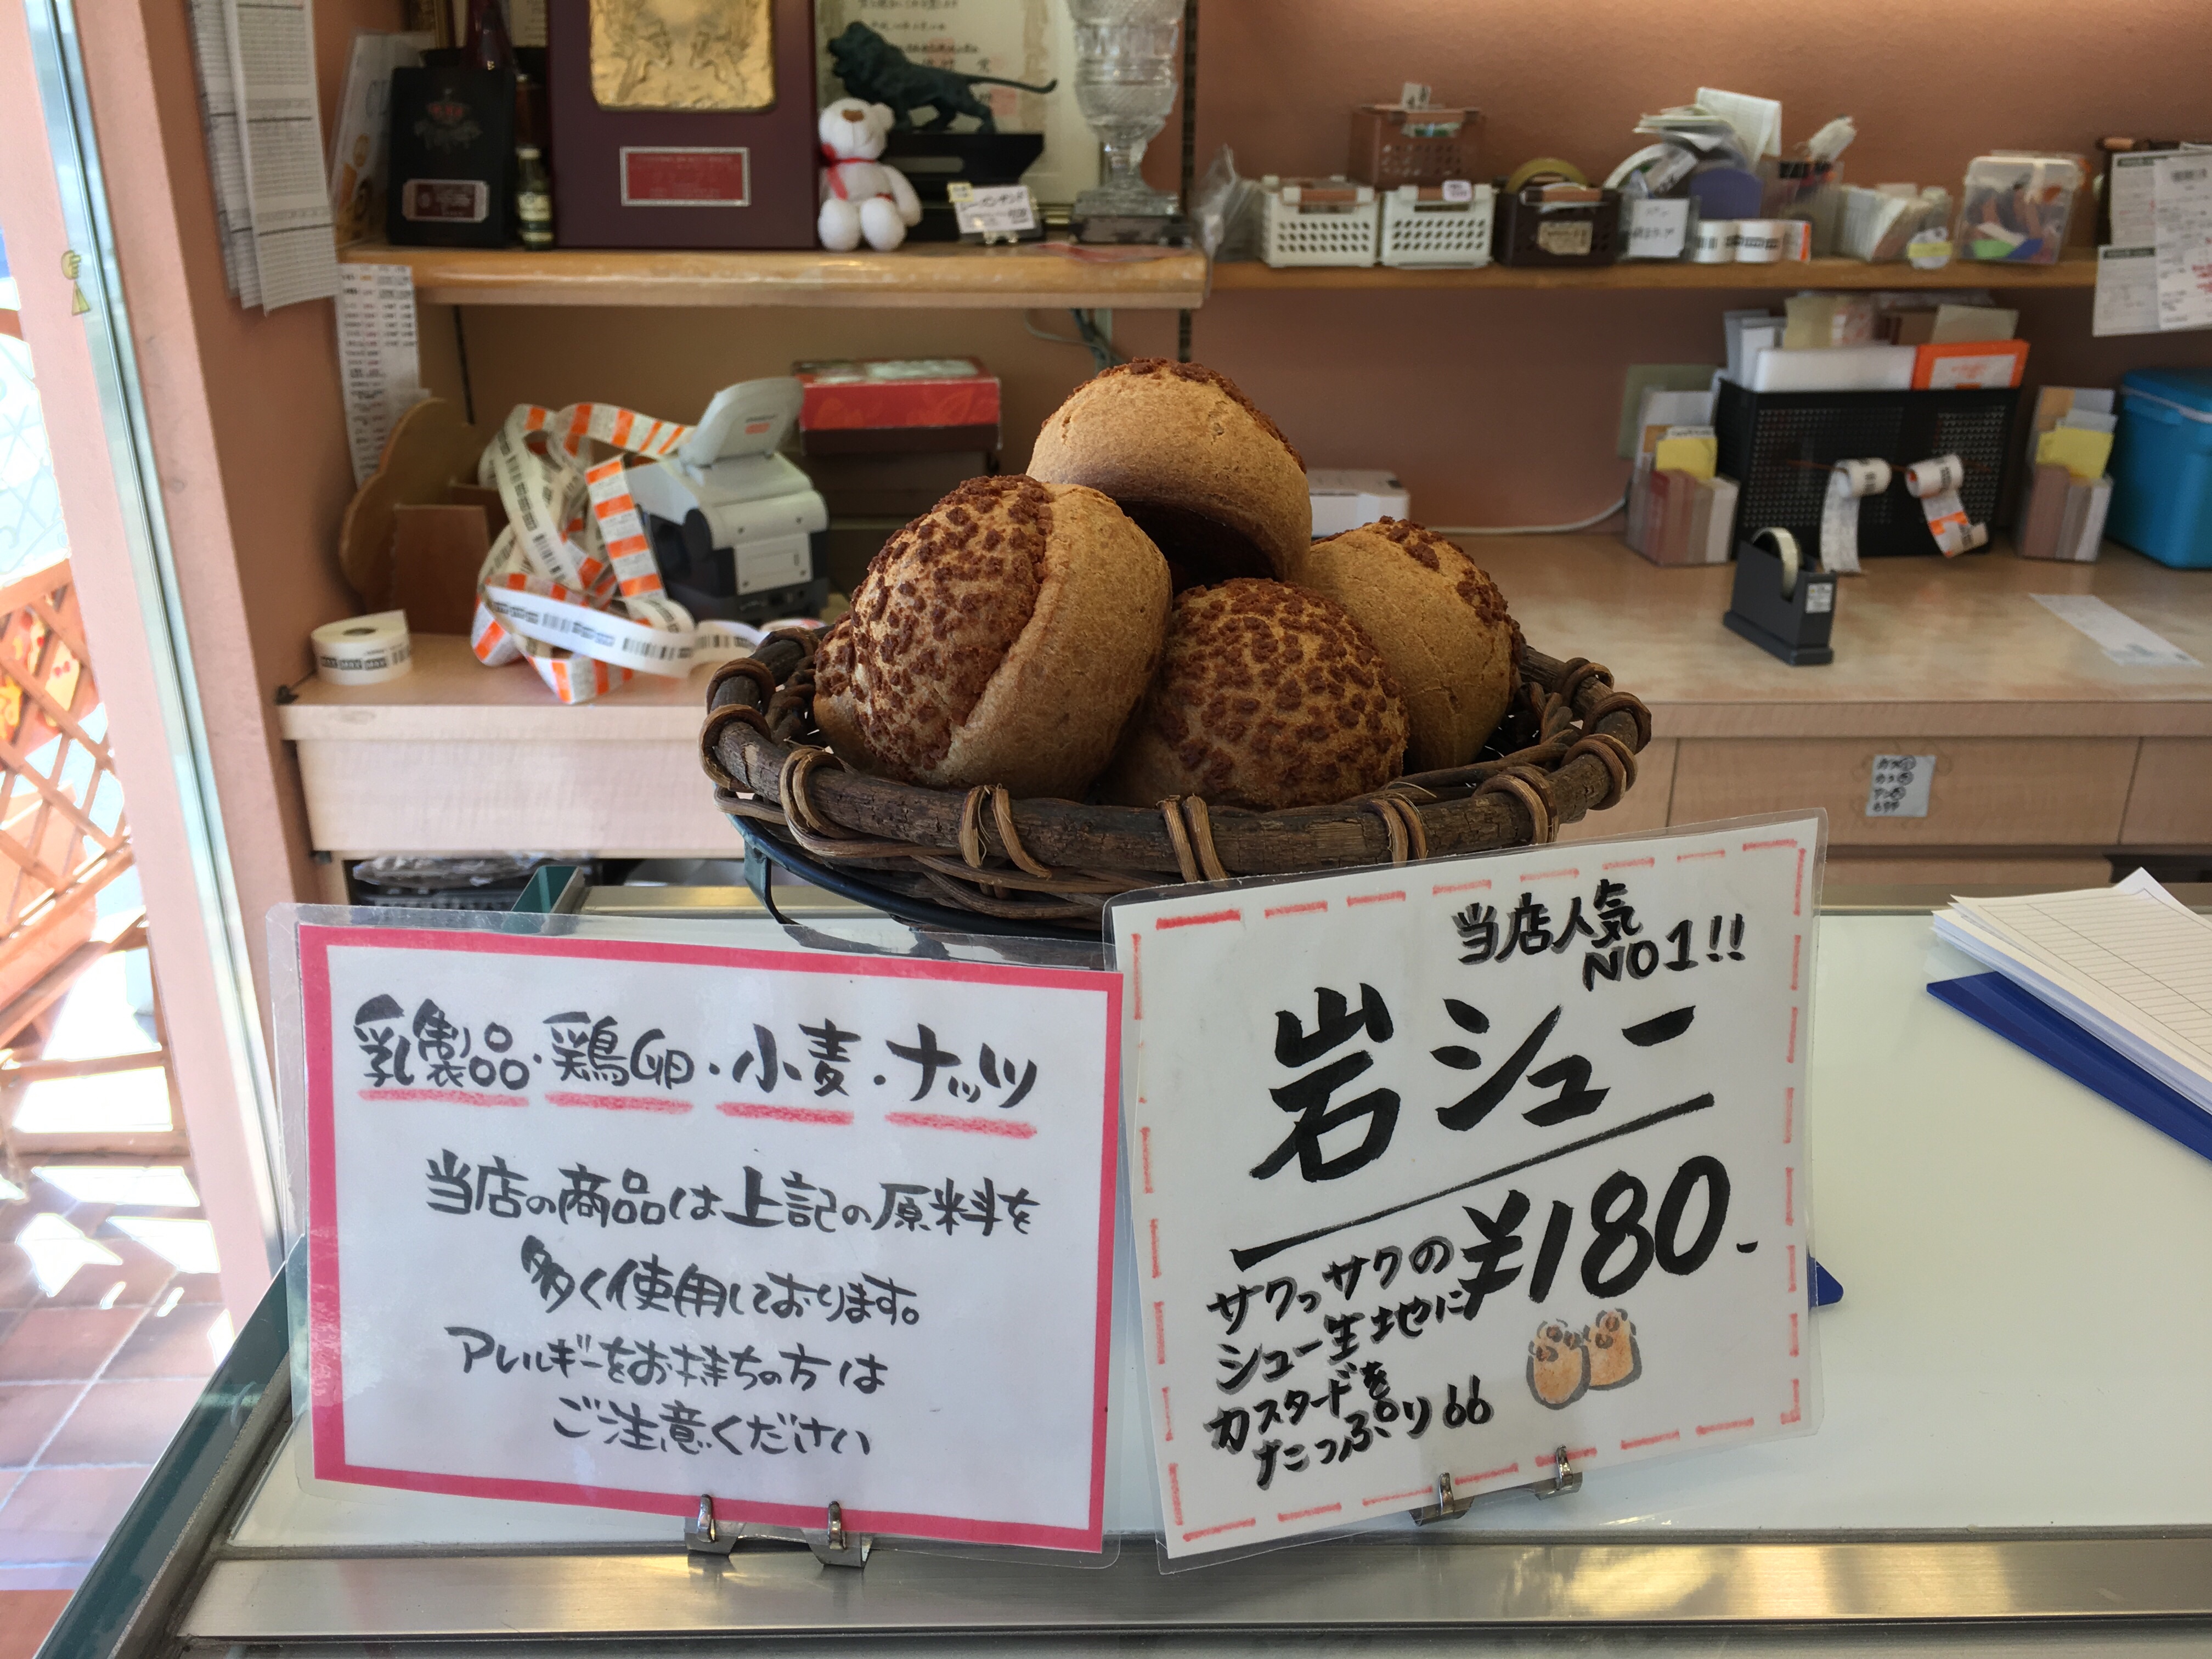 乳製品・鶏卵・小麦・ナッツ
当店の商品は上記の原料を
多く使用しております。
アレルギーをお持ちの方は
ご注意ください
当店人気
NO1!!
岩シュー
¥180-
サクっサクの
シュー生地に
カスタードを
たっぷり